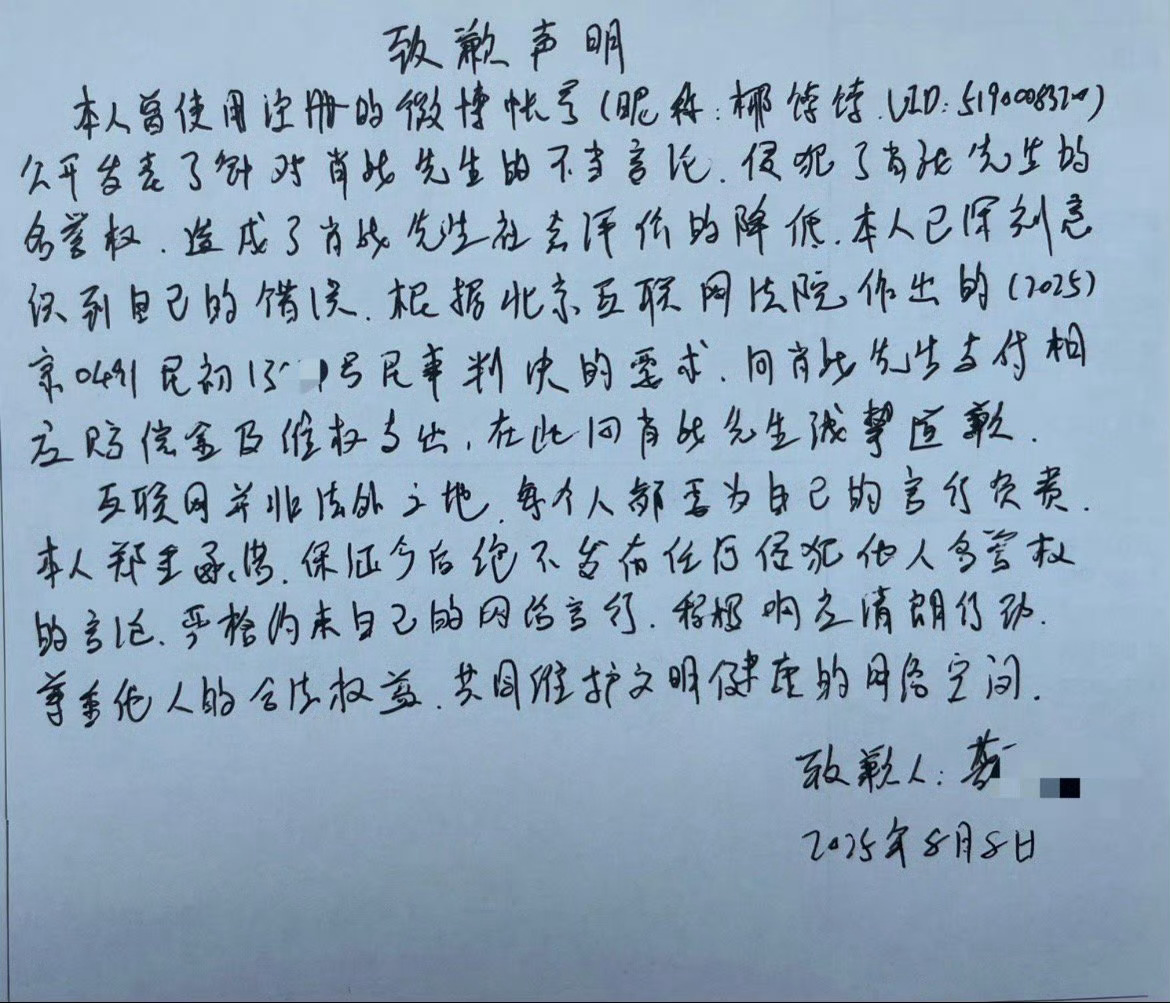 致歉声明
本人曾使用注册的微博帐号(昵称:椰饽饽.UID:5190083200)
公开发表了针对肖战先生的不当言论.侵犯了肖战先生的
名誉权.造成了肖战先生社会评价的降低.本人已深刻意
识到自己的错误.根据北京互联网法院作出的(2025)
京0491民初13 号民事判决的要求.向肖战先生支付相
应赔偿金及维权支出,在此向肖战先生诚挚道歉.
互联网并非法外之地.每个人都要为自己的言行负责.
本人郑重承诺.保证今后绝不发布任何侵犯他人名誉权
的言论.严格约束自己的网络言行.积极响应清朗行动.
尊重他人的合法权益.共同维护文明健康的网络空间.
致歉人:
2025年8月8日